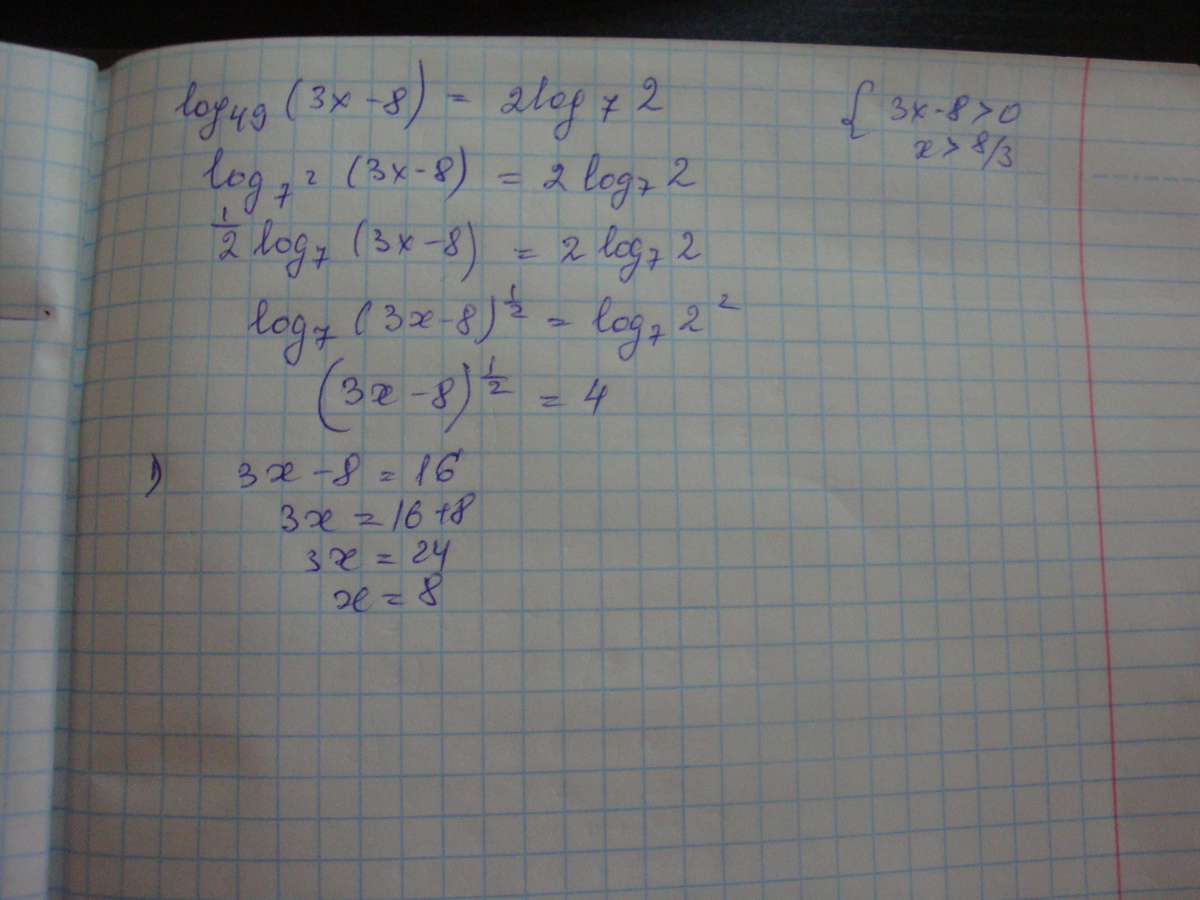 log₄₉ (3x-8) = 2log₇ 2
{ 3x-8>0
x > 8/3
log₇² (3x-8) = 2 log₇ 2
1/2 log₇ (3x-8) = 2 log₇ 2
log₇ (3x-8)^1/2 = log₇ 2²
(3x-8)^1/2 = 4
1) 3x-8 = 16
3x = 16+8
3x = 24
x = 8